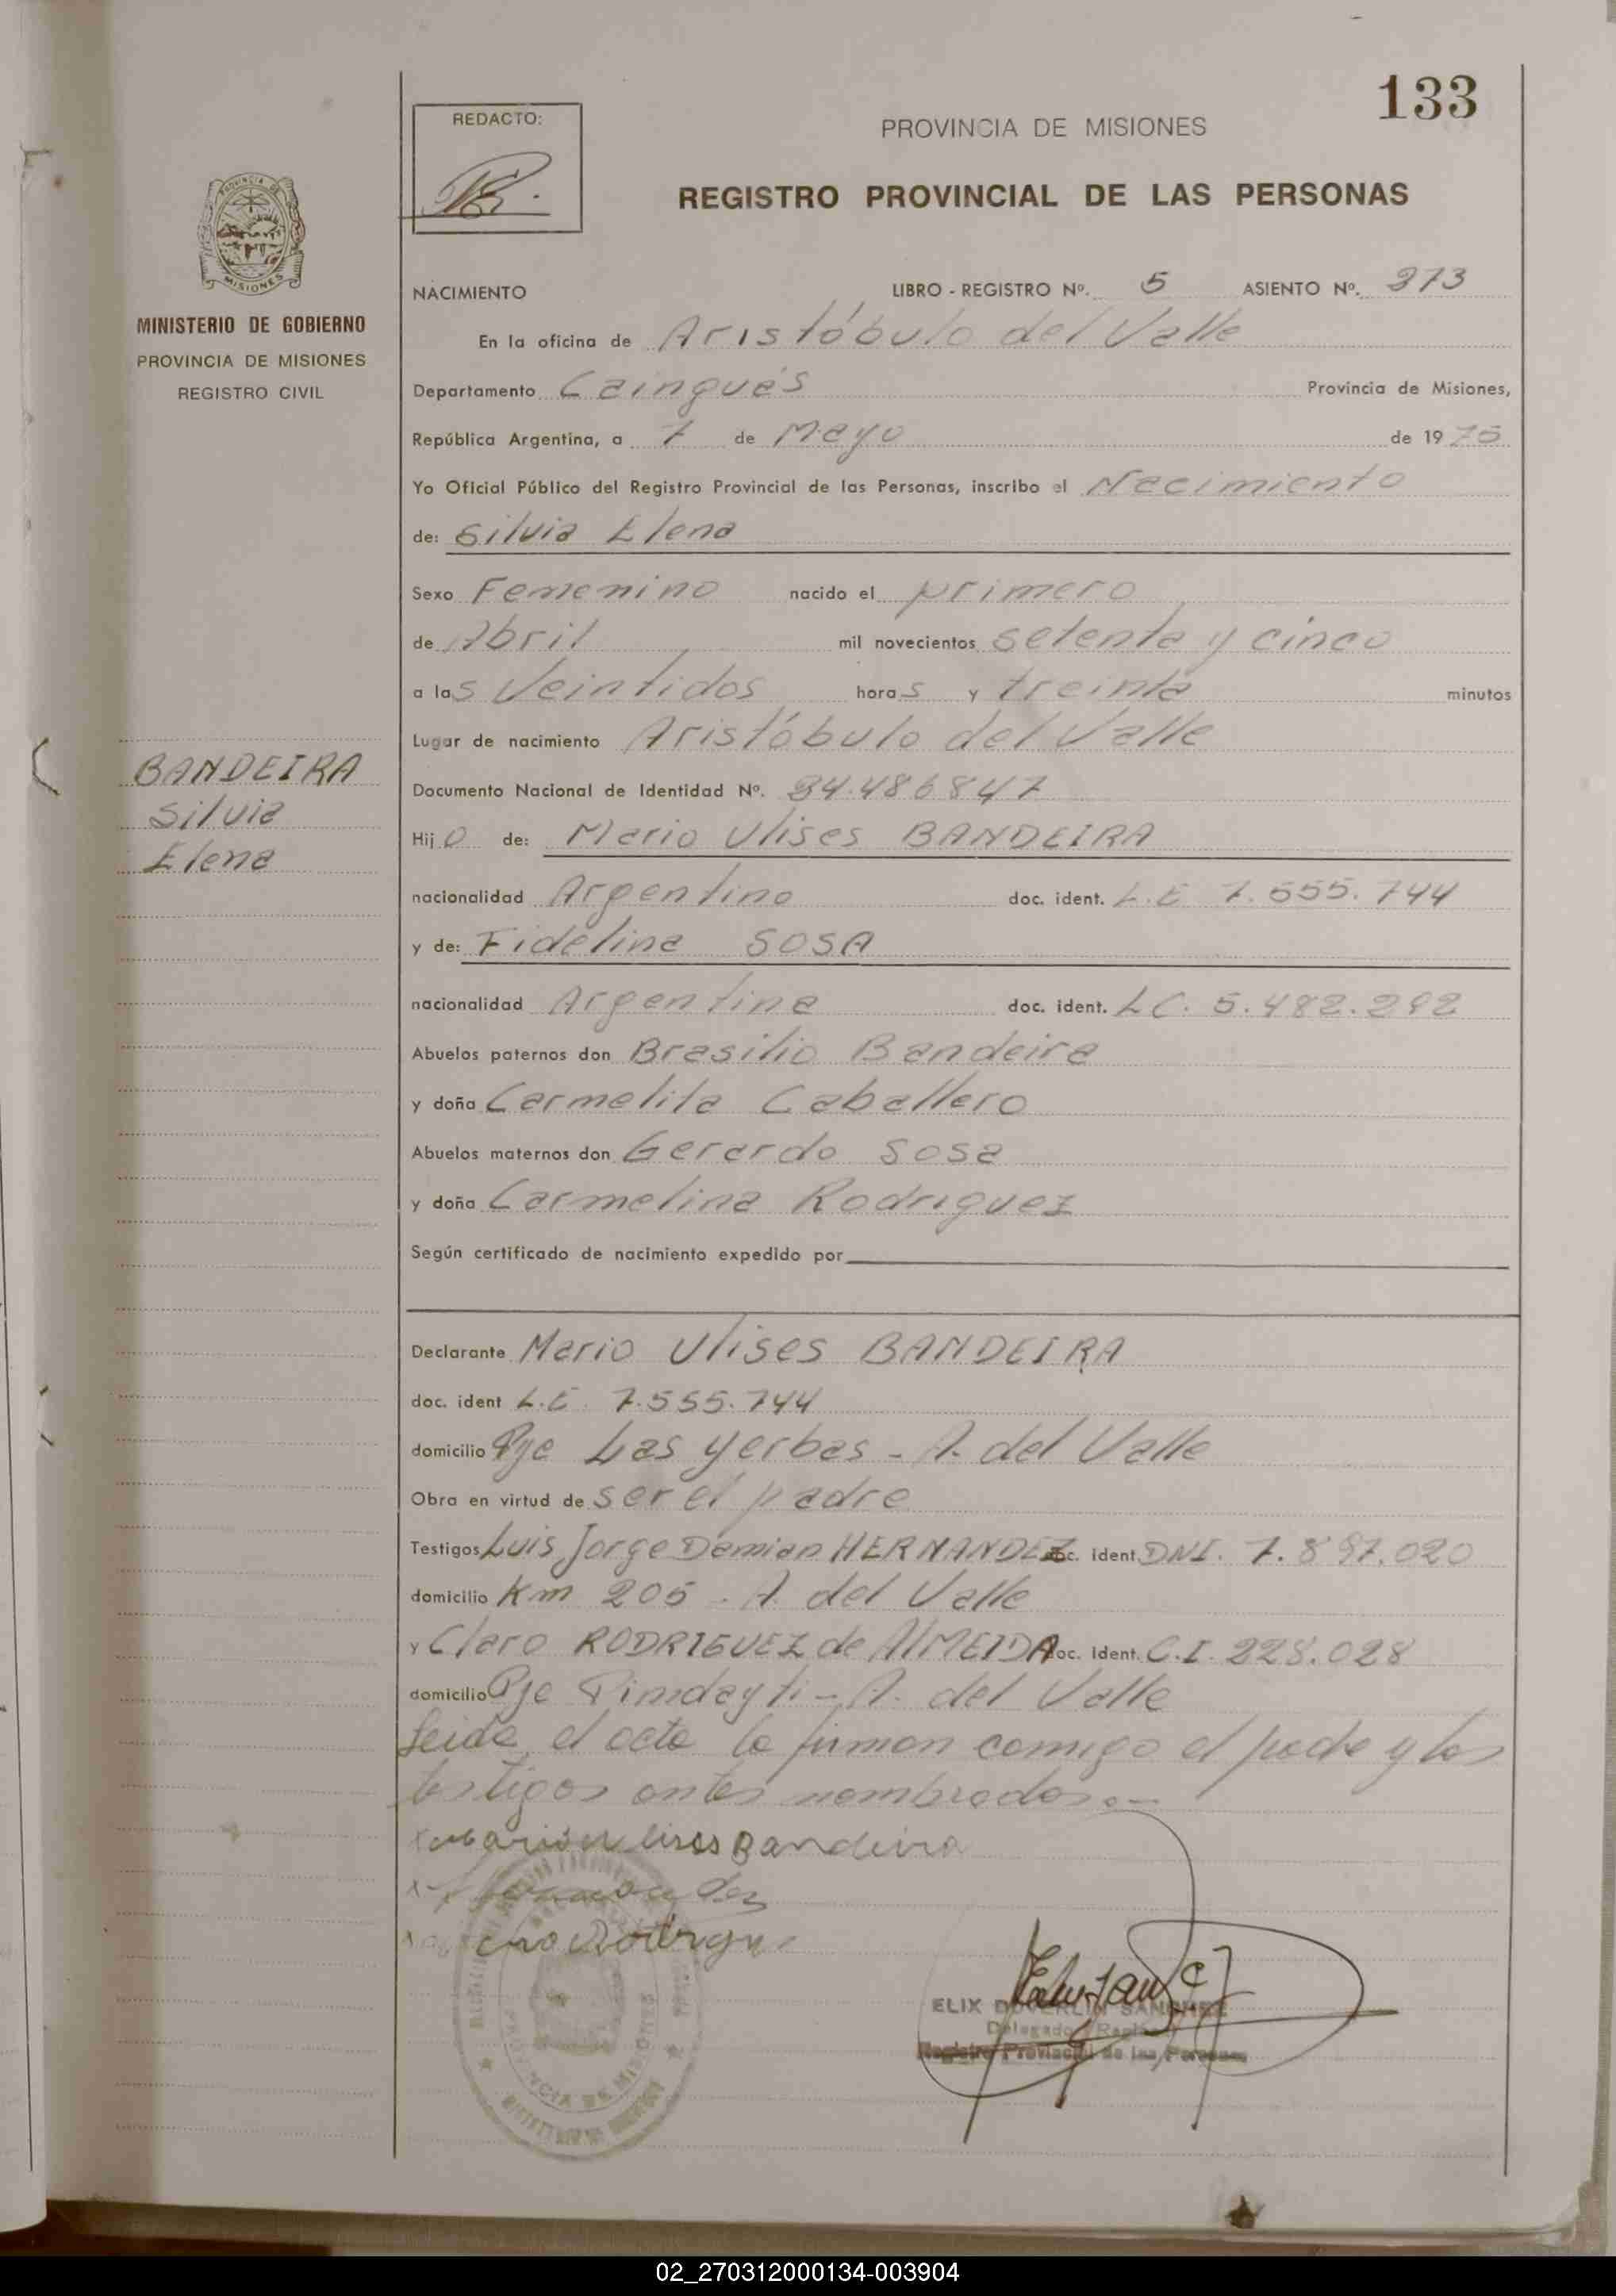 133
REDACTO:
PROVINCIA DE MISIONES
REGISTRO PROVINCIAL DE LAS PERSONAS
MISIONES
MINISTERIO DE GOBIERNO
PROVINCIA DE MISIONES
REGISTRO CIVIL
NACIMIENTO LIBRO - REGISTRO Nº. 5 ASIENTO Nº. 373
En la oficina de Aristóbulo del Valle
Departamento Cainguás Provincia de Misiones,
República Argentina, a 7 de Mayo de 1975
Yo Oficial Público del Registro Provincial de las Personas, inscribo el Nacimiento
de: Silvia Elena
Sexo Femenino nacido el primero
de Abril mil novecientos setenta y cinco
a las Veintidos horas y treinta minutos
Lugar de nacimiento Aristóbulo del Valle
Documento Nacional de Identidad Nº. 34.486847
BANDEIRA
Silvia
Elena
Hijo de: Mario Ulises BANDEIRA
nacionalidad Argentino doc. ident. L.E 7.555.744
y de: Fidelina SOSA
nacionalidad Argentina doc. ident. LC. 5.482.292
Abuelos paternos don Brasilio Bandeira
y doña Carmelita Caballero
Abuelos maternos don Gerardo Sosa
y doña Carmelina Rodriguez
Según certificado de nacimiento expedido por
Declarante Mario Ulises BANDEIRA
doc. ident L.E. 7.555.744
domicilio Pje Las Yerbas - A. del Valle
Obra en virtud de ser el padre
Testigos Luis Jorge Damian HERNANDEZ doc. ident. DNI. 7.897.020
domicilio Km 205 - A. del Valle
y Claro RODRIGUEZ de ALMEIDA doc. ident. C.I. 228.028
domicilio Pje Pindayti - A. del Valle
Leida el acta la firman comigo el padre y los
testigos antes nombrados.-
Mario Ulises Bandeira
ELIX SANCHEZ
Delegado
Registro Provincial de las Personas
PROVINCIA DE MISIONES
02_270312000134-003904